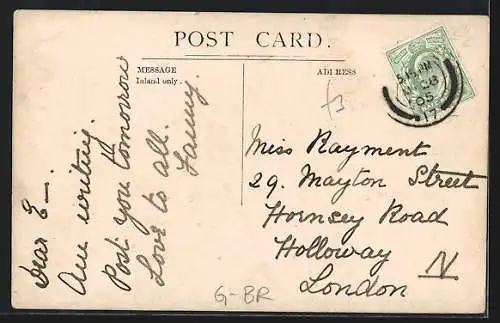 POST CARD.
MESSAGE
Inland only.
ADDRESS
Dear E—.
Am writing.
Post you tomorrow
Love to all.
Fanny.
Miss Rayment
29. Mayton Street
Hornsey Road
Holloway
London N
G-BR
05
17